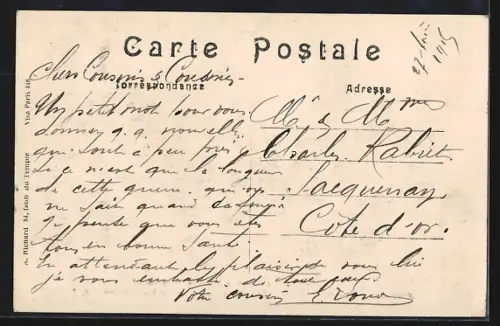 Carte Postale
27 1915
Chers Cousins & Cousines
Correspondance
Adresse
Un petit mot pour vous
donner q.q. nouvelles
qui sont à peu près
si ce n'est que la longueur
de cette guerre qu'on
ne sait quand
Je pense que vous êtes
tous en bonne santé
En attendant le plaisir de vous lire
je vous embrasse de tout
Votre cousin
Mr & Mmes
Charles
Jacquenay
Côte d'or.
A. Richard 84, Louis du Temple Visa Paris